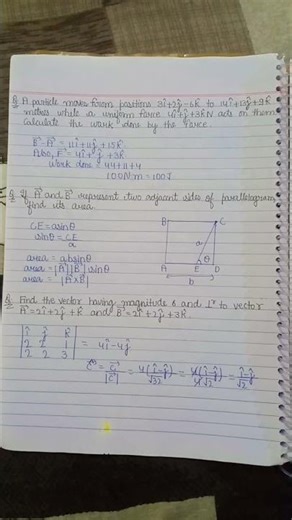 Q A particle moves from positions 3î+2ĵ-6k̂ to 14î+13ĵ+9k̂
metres while a uniform force 4î+ĵ+3k̂ N acts on them
Calculate the work done by the force.
B⃗-A⃗ = 11î+11ĵ+15k̂
Also, F⃗ = 4î+ĵ+3k̂
Work done = 44+11+4
100 N·m = 100J
Q If A⃗ and B⃗ represent two adjacent sides of parallelogram
find its area.
CE = asinθ
sinθ = CE/a
area = absinθ
area = |A⃗||B⃗| sinθ
area = |A⃗×B⃗|
B C
a
θ
A E D
b
Q Find the vector having magnitude 6 and ⊥ʳ to vector
A⃗=2î+2ĵ+k̂ and B⃗=2î+2ĵ+3k̂
|î ĵ k̂|
|2 2 1| = 4î-4ĵ
|2 2 3|
Ĉ = C⃗/|C⃗| = 4(î-ĵ)/√32 = 4(î-ĵ)/4√2 = î-ĵ/√2